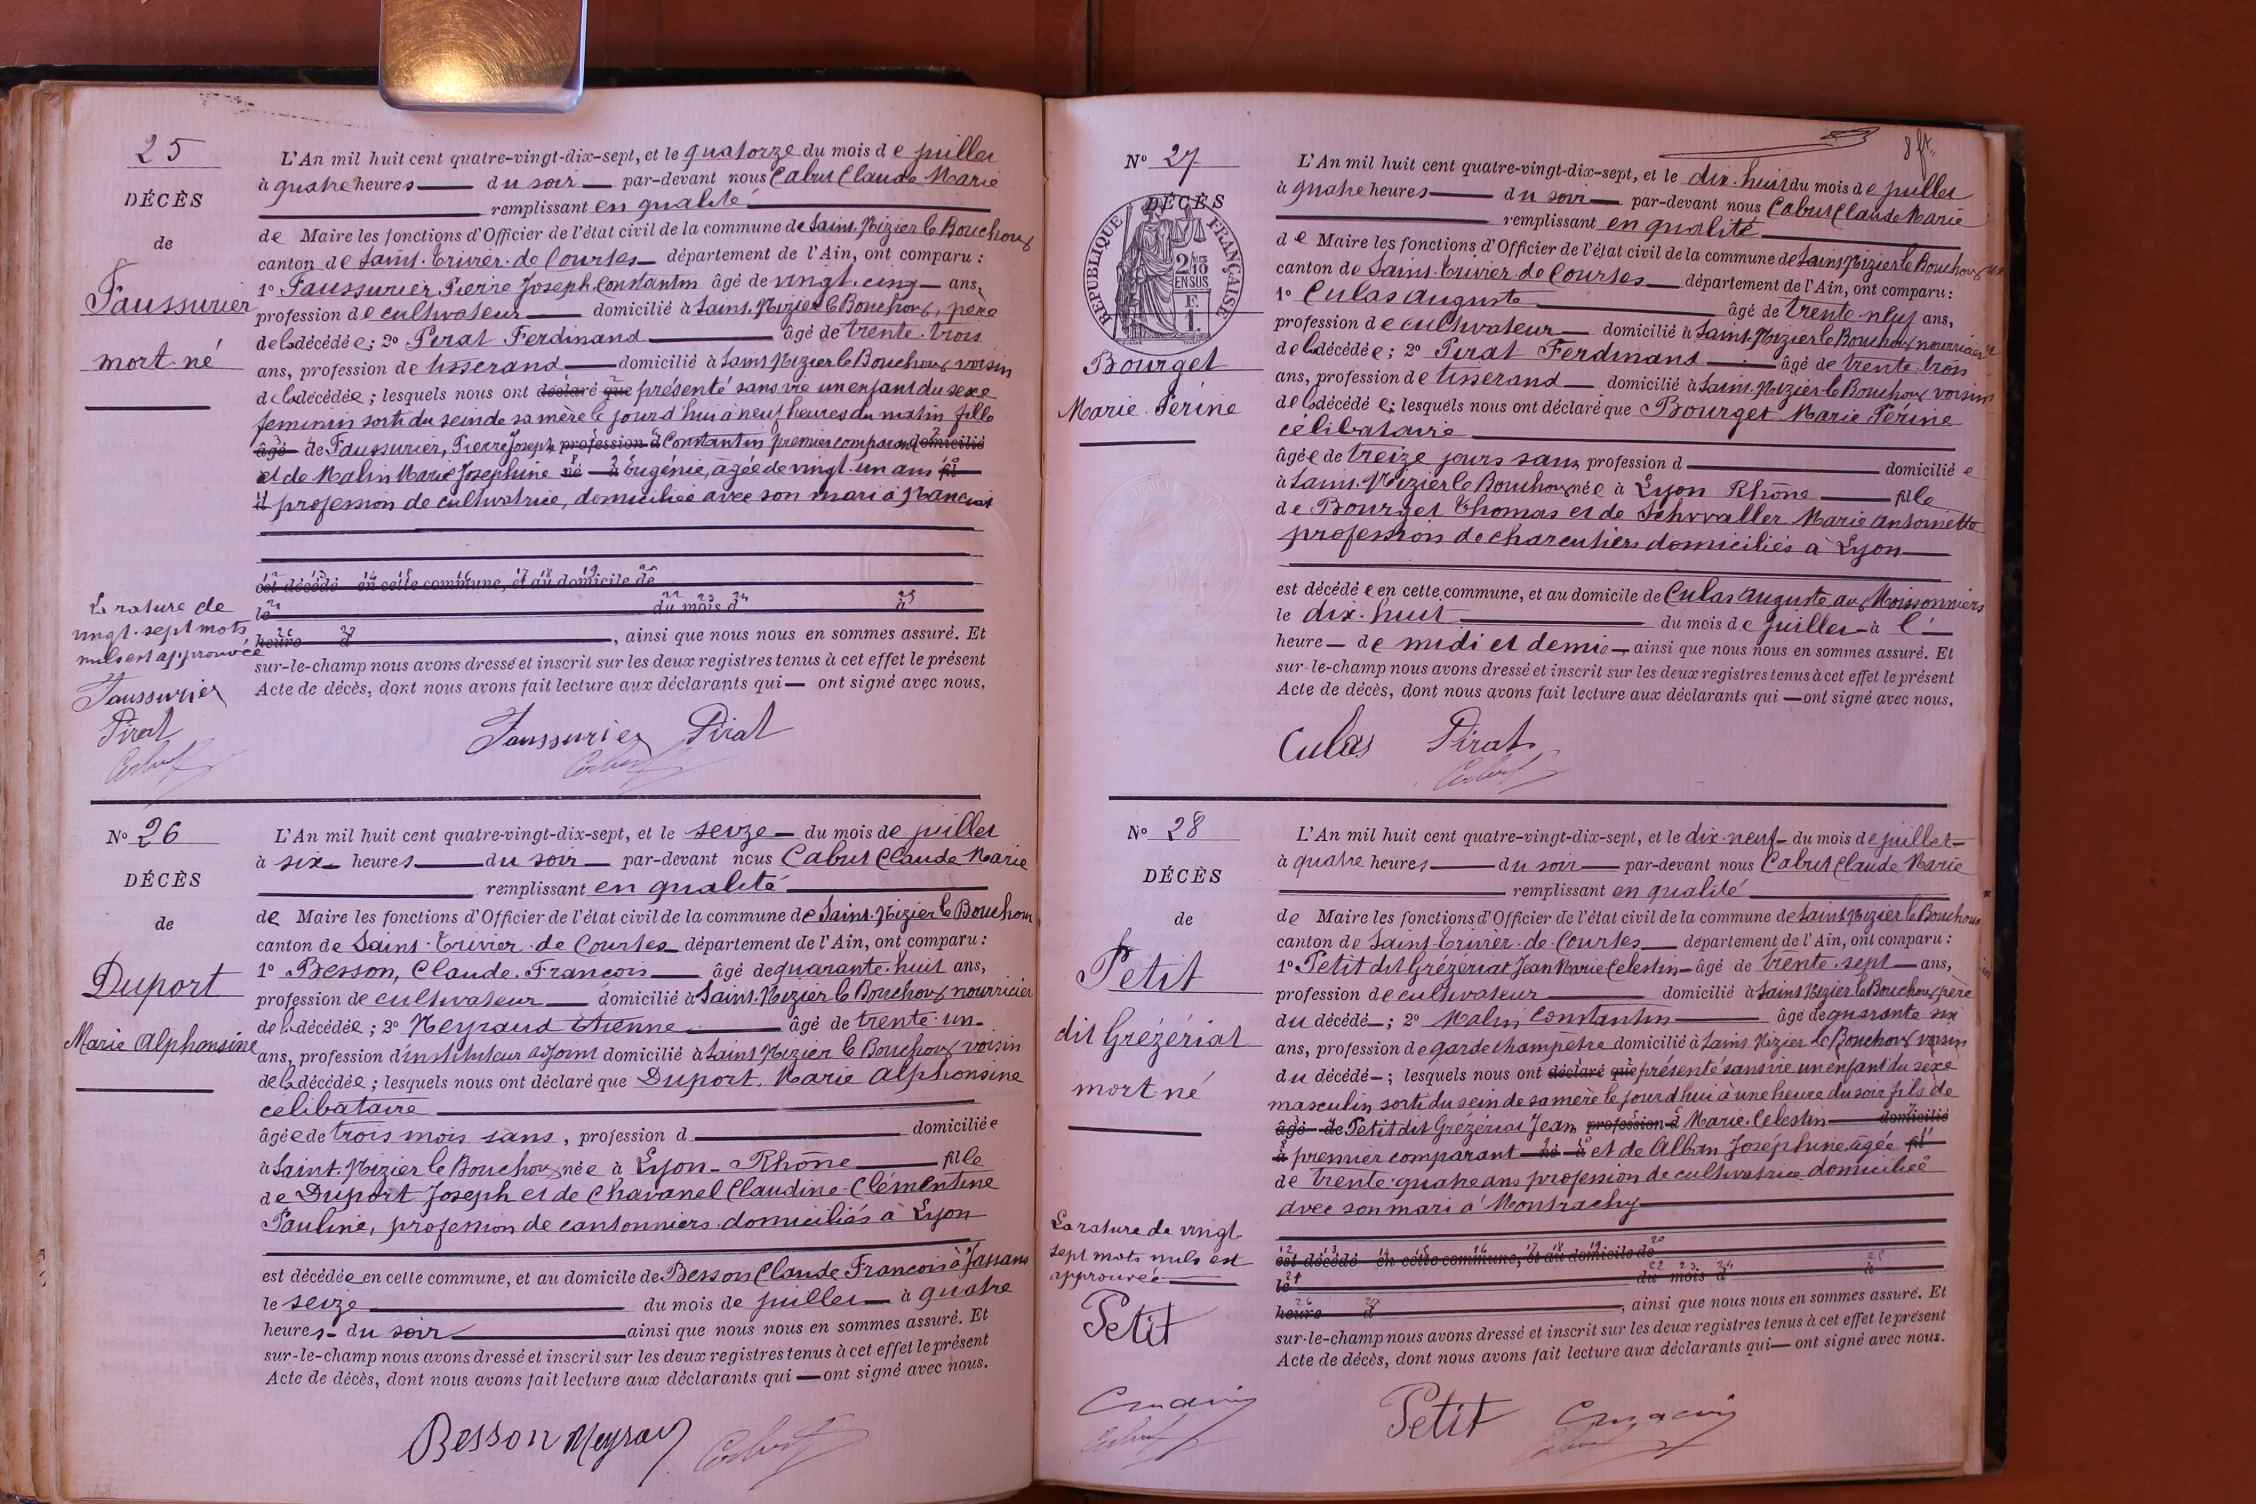 25
DÉCÈS
de
Faussurier
mort-né
L'An mil huit cent quatre-vingt-dix-sept, et le quatorze du mois de juillet
à quatre heures du soir par-devant nous Cabut Claude Marie
remplissant en qualité
de Maire les fonctions d'Officier de l'état civil de la commune de Saint-Nizier le Bouchoux
canton de Saint-Trivier-de-Courtes département de l'Ain, ont comparu :
1º Faussurier Pierre Joseph Constantin âgé de vingt-cinq ans,
profession de cultivateur domicilié à Saint-Nizier le Bouchoux, père
de la décédée ; 2º Pirat Ferdinand âgé de trente-trois
ans, profession de tisserand domicilié à Saint Nizier le Bouchoux voisin
de la décédée ; lesquels nous ont déclaré que présenté sans vie un enfant du sexe
feminin sorti du sein de sa mère le jourd'hui à neuf heures du matin fille
âgé de Faussurier, Pierre Joseph profession d Constantin premier comparant domicilié
et de Malin Marie Josephine né à Eugénie, âgée de vingt-un ans fil
d profession de cultivatrice, domiciliée avec son mari à Manciat
est décédé en cette commune, et au domicile de
le du mois d à
heure d , ainsi que nous nous en sommes assuré. Et
sur-le-champ nous avons dressé et inscrit sur les deux registres tenus à cet effet le présent
Acte de décès, dont nous avons fait lecture aux déclarants qui ont signé avec nous.
La rature de
vingt-sept mots
nuls est approuvée
Faussurier
Pirat
Faussurier Pirat
Nº 26
DÉCÈS
de
Duport
Marie Alphonsine
L'An mil huit cent quatre-vingt-dix-sept, et le seize du mois de juillet
à six heures du soir par-devant nous Cabut Claude Marie
remplissant en qualité
de Maire les fonctions d'Officier de l'état civil de la commune de Saint-Nizier le Bouchoux
canton de Saint-Trivier-de-Courtes département de l'Ain, ont comparu :
1º Besson, Claude-François âgé de quarante-huit ans,
profession de cultivateur domicilié à Saint-Nizier le Bouchoux nourricier
de la décédée ; 2º Neyraud Etienne âgé de trente-un
ans, profession d'instituteur adjoint domicilié à Saint Nizier le Bouchoux voisin
de la décédée ; lesquels nous ont déclaré que Duport, Marie Alphonsine
célibataire
âgée de trois mois sans, profession d domiciliée
à Saint-Nizier le Bouchoux née à Lyon-Rhône fille
de Duport Joseph et de Chavanel Claudine-Clémentine
Pauline, profession de cantonniers domiciliés à Lyon
est décédée en cette commune, et au domicile de Besson Claude François à Jassans
le seize du mois de juillet à quatre
heures du soir ainsi que nous nous en sommes assuré. Et
sur-le-champ nous avons dressé et inscrit sur les deux registres tenus à cet effet le présent
Acte de décès, dont nous avons fait lecture aux déclarants qui ont signé avec nous.
Besson Neyraud
8 ft.
Nº 27
DÉCÈS
RÉPUBLIQUE FRANÇAISE
2/10
EN SUS
Bourget
Marie-Périne
L'An mil huit cent quatre-vingt-dix-sept, et le dix-huit du mois de juillet
à quatre heures du soir par-devant nous Cabut Claude Marie
remplissant en qualité
de Maire les fonctions d'Officier de l'état civil de la commune de Saint Nizier le Bouchoux
canton de Saint-Trivier-de-Courtes département de l'Ain, ont comparu :
1º Culas Auguste âgé de trente-neuf ans,
profession de cultivateur domicilié à Saint-Nizier le Bouchoux nourricier
de la décédée ; 2º Pirat Ferdinand âgé de trente-trois
ans, profession de tisserand domicilié à Saint-Nizier-le Bouchoux voisin
de la décédée ; lesquels nous ont déclaré que Bourget Marie Périne
célibataire
âgée de treize jours sans profession d domiciliée
à Saint-Nizier le Bouchoux née à Lyon Rhône fille
de Bourget Thomas et de Schvvaller Marie Antoinette
profession de charcutiers domiciliés à Lyon
est décédée en cette commune, et au domicile de Culas Auguste aux Moissonniers
le dix-huit du mois de juillet à l'
heure de midi et demie ainsi que nous nous en sommes assuré. Et
sur-le-champ nous avons dressé et inscrit sur les deux registres tenus à cet effet le présent
Acte de décès, dont nous avons fait lecture aux déclarants qui ont signé avec nous.
Culas Pirat
Nº 28
DÉCÈS
de
Petit
dit Grézériat
mort né
L'An mil huit cent quatre-vingt-dix-sept, et le dix-neuf du mois de juillet
à quatre heures du soir par-devant nous Cabut Claude Marie
remplissant en qualité
de Maire les fonctions d'Officier de l'état civil de la commune de Saint Nizier le Bouchoux
canton de Saint-Trivier-de-Courtes département de l'Ain, ont comparu :
1º Petit dit Grézériat Jean Marie Celestin âgé de trente-sept ans,
profession de cultivateur domicilié à Saint Nizier le Bouchoux père
du décédé ; 2º Malin Constantin âgé de quarante-six
ans, profession de garde champêtre domicilié à Saint Nizier le Bouchoux voisin
du décédé ; lesquels nous ont déclaré que présenté sans vie un enfant du sexe
masculin sorti du sein de sa mère le jourd'hui à une heure du soir fils de
âgé de Petit dit Grézériat Jean profession d Marie-Celestin domicilié
à premier comparant né à et de Alban Joséphine âgée fil
de trente-quatre ans profession de cultivatrice domiciliée
avec son mari à Montrachy
est décédé en cette commune, et au domicile de
le du mois d à
heure d , ainsi que nous nous en sommes assuré. Et
sur-le-champ nous avons dressé et inscrit sur les deux registres tenus à cet effet le présent
Acte de décès, dont nous avons fait lecture aux déclarants qui ont signé avec nous.
La rature de vingt
sept mots nuls est
approuvée
Petit
Petit